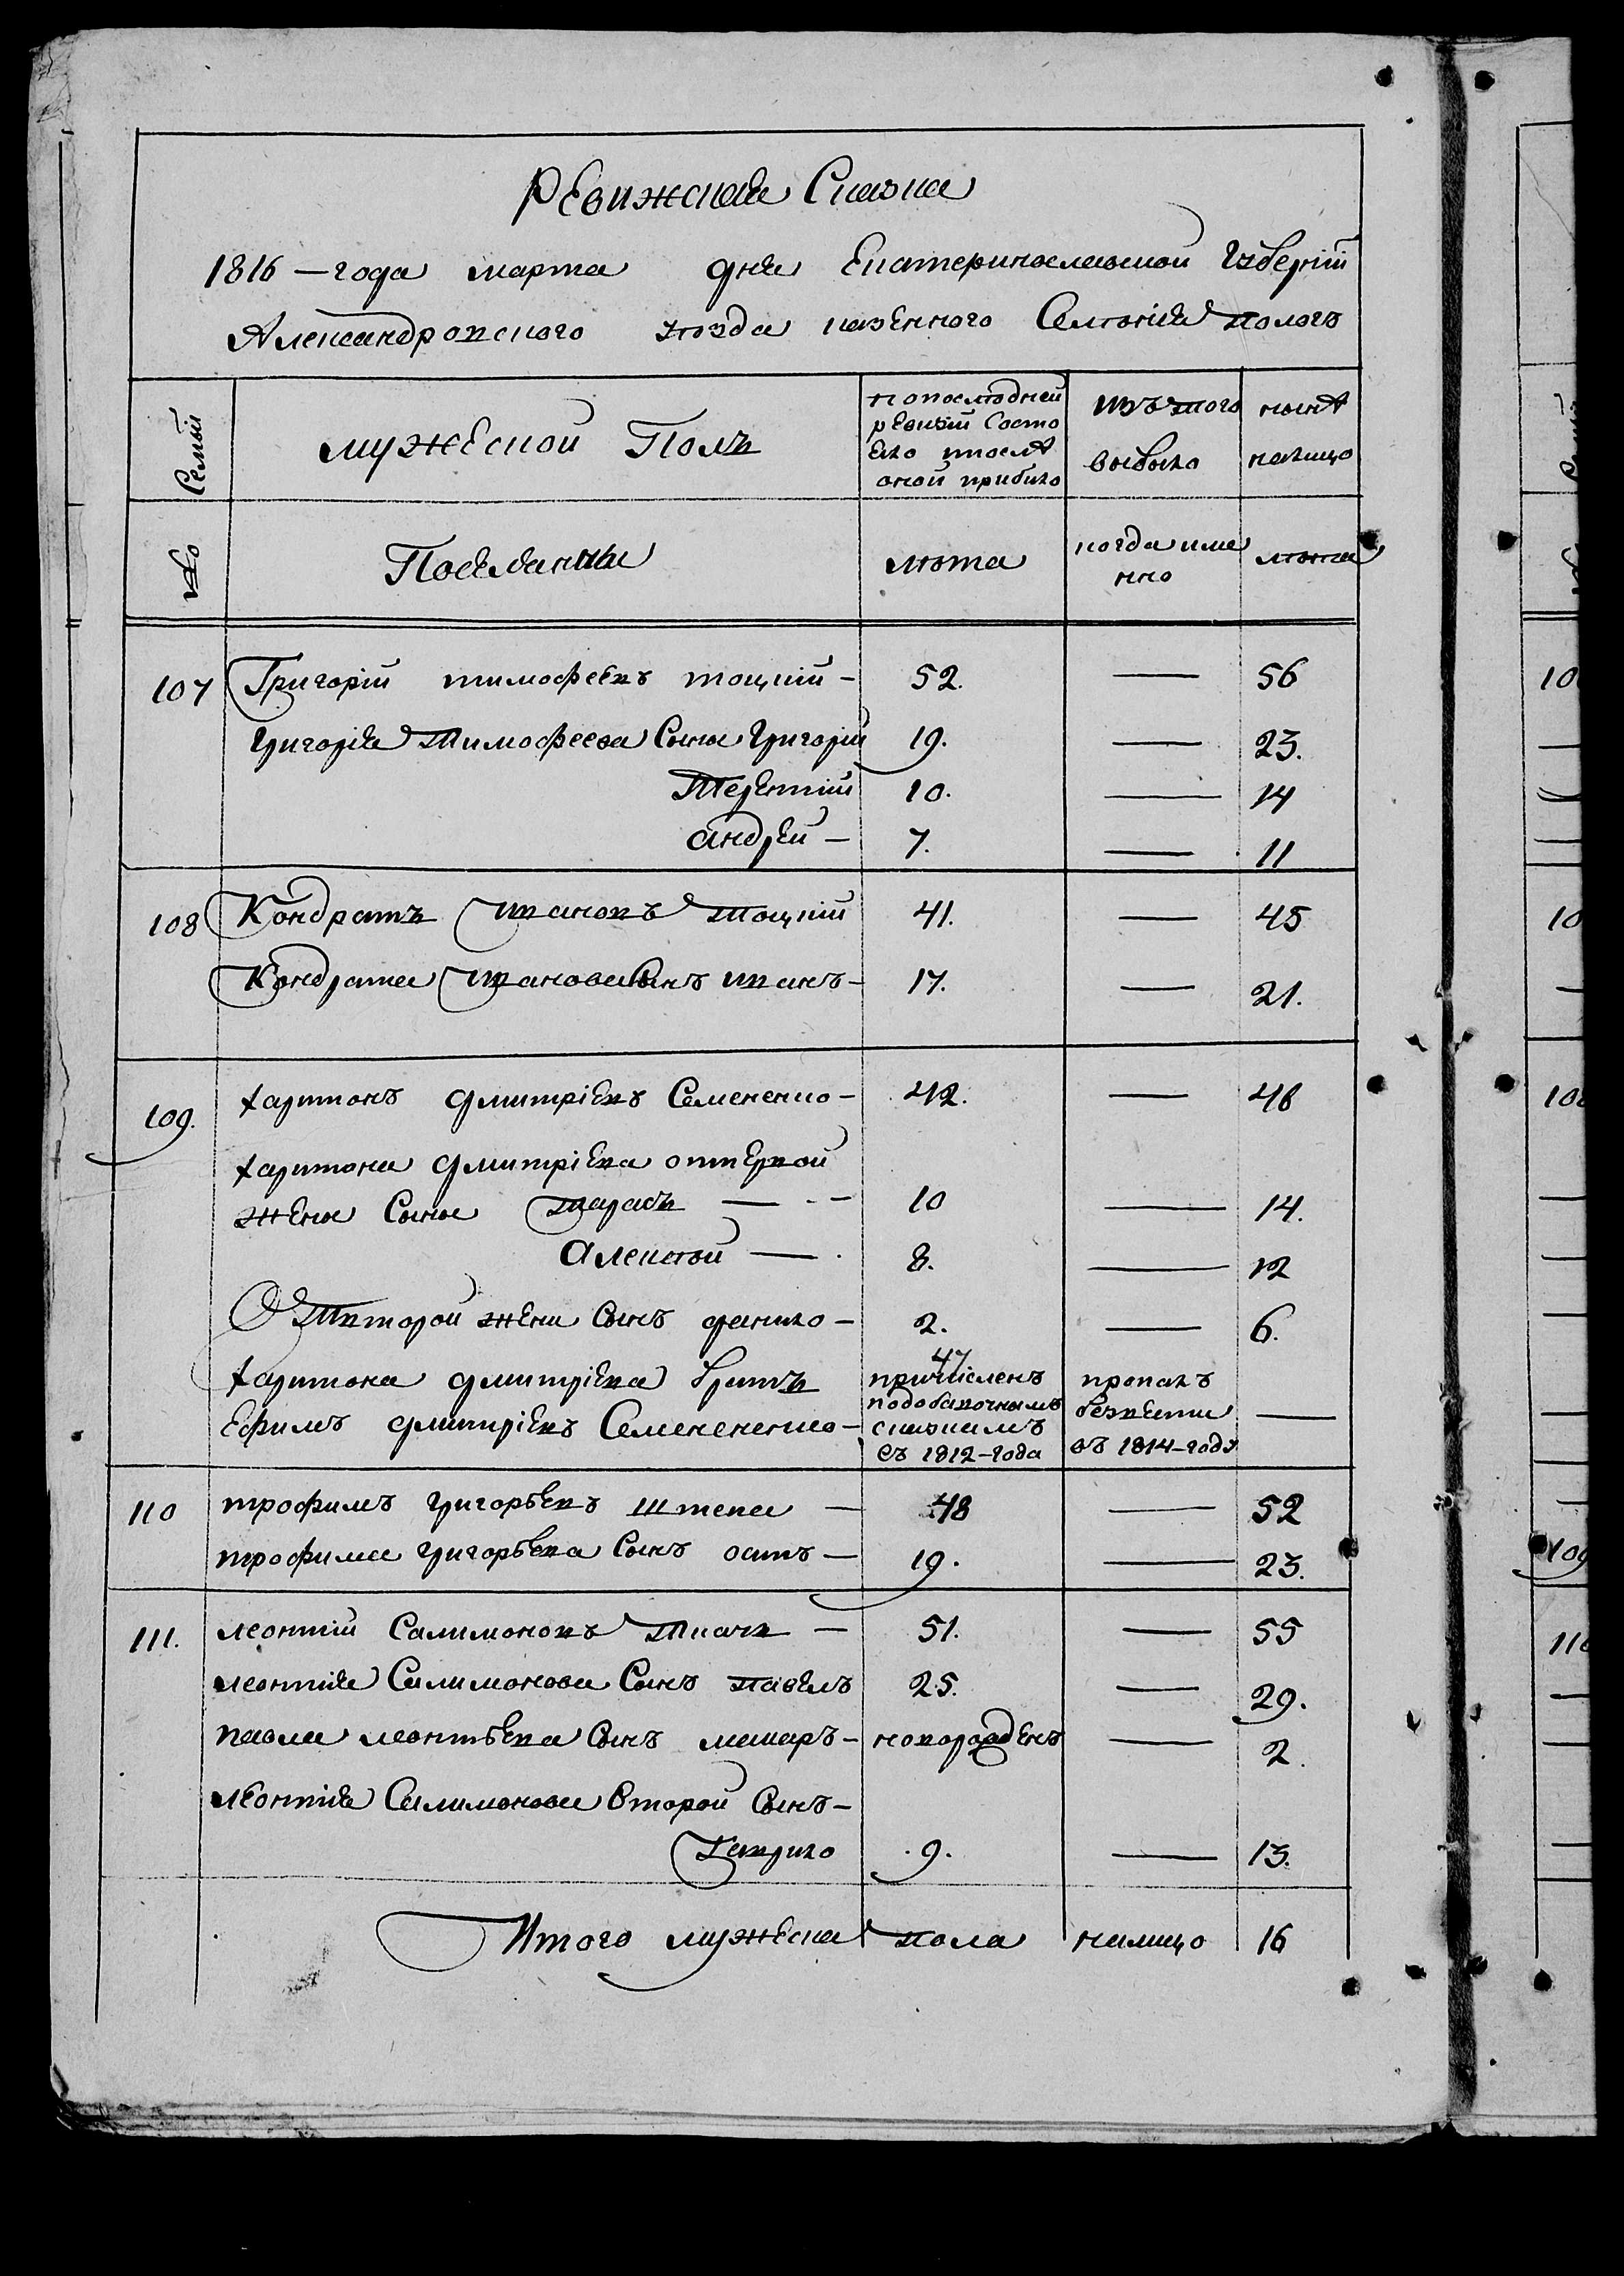 Ревижская Сказка
1816 — года марта дня Екатеринославской Губерніи
Александровского уѣзда казенного Селенія Пологъ
Семьи
мужеской Полъ
По последней ревизіи Состояло и после оной прибыло
Изъ того выбыло
ныне налицо
№
Поселянина
лѣта
когда именно
лѣта
107 Григорій тимофеевъ тоцкій — 52. — 56
Григорія Тимофеева Сыны Григорій 19. — 23.
Терентій 10. — 14
андрей — 7. — 11
108 Кондратъ Ивановъ Тоцкій 41. — 45
Кондрата Иванова Сынъ иванъ — 17. — 21.
109. Харитонъ дмитріевъ Семененко — 42. — 46
Харитона дмитріева от первой
жены Сыны тарасъ — 10 — 14.
Алексей — 8. — 12
От второй жены Сынъ данило — 2. — 6.
47
Харитона дмитріева братъ причисленъ пропалъ
Ефимъ дмитріевъ Семененко — по добавочнымъ сказкамъ съ 1812-года безвести въ 1814-году —
110 трофимъ григорьевъ штепа — 48 — 52
трофима григорьева Сынъ осипъ — 19. — 23.
111. леонтій Салимоновъ Ткачь — 51. — 55
леонтія Салимонова Сынъ павелъ 25. — 29.
павла леонтьева Сынъ макаръ — новорожденъ — 2.
леонтія Салимонова Второй Сынъ —
Гаврило 9. — 13.
Итого мужеска пола налицо 16
10
10
108
109
110